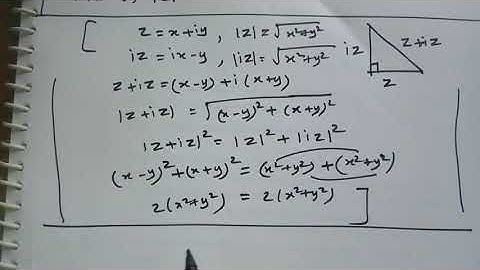 z = x+iy , |z| = √x²+y²
iz = ix-y , |iz| = √x²+y²
iz
z+iz
z
z+iz = (x-y) + i(x+y)
|z+iz| = √(x-y)² + (x+y)²
|z+iz|² = |z|² + |iz|²
(x-y)² + (x+y)² = (x²+y²) + (x²+y²)
2(x²+y²) = 2(x²+y²)